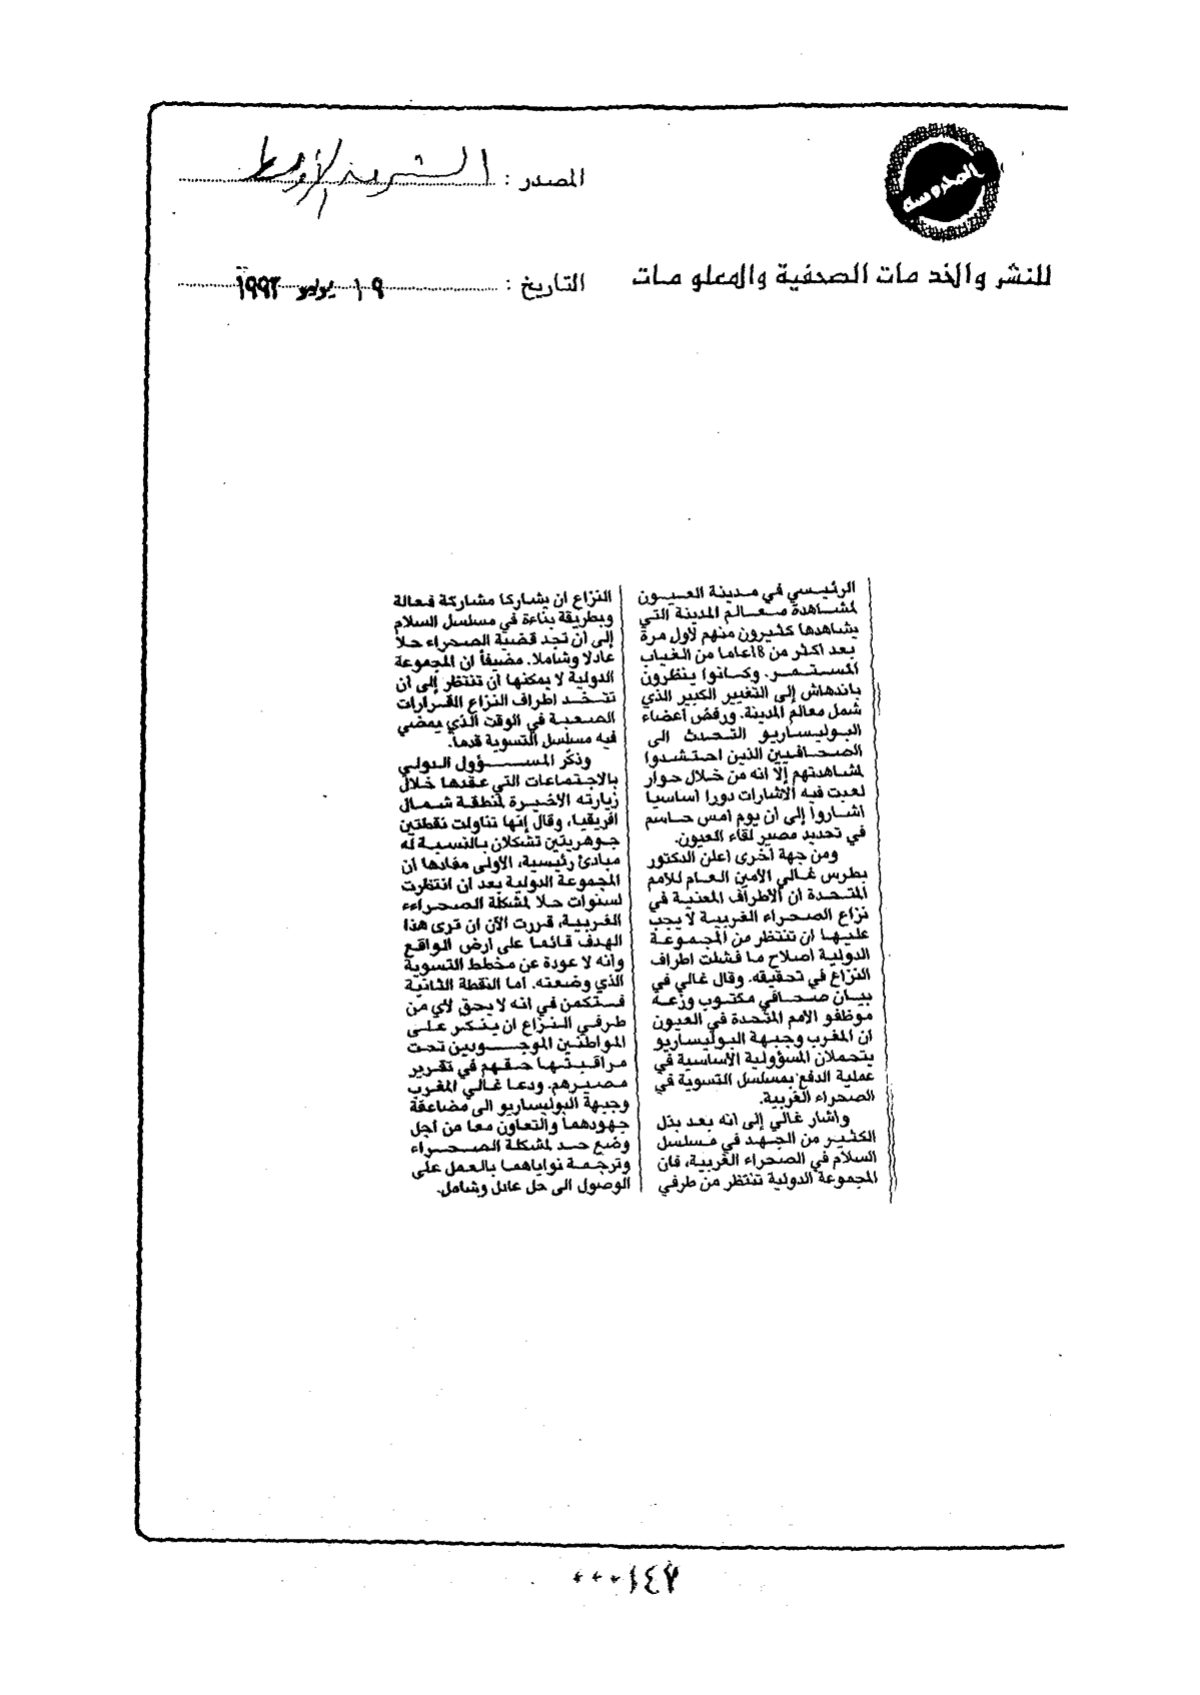 المحروسة
المصدر : الشرق الأوسط
للنشر والخدمات الصحفية والمعلومات
التاريخ : ١٩ يوليو ١٩٩٣
الرئيسي في مدينة العيون
لمشاهدة معالم المدينة التي
يشاهدها كثيرون منهم لأول مرة
بعد اكثر من 18عاما من الغياب
المستمر. وكانوا ينظرون
باندهاش إلى التغيير الكبير الذي
شمل معالم المدينة. ورفض أعضاء
البوليساريو التحدث الى
الصحافيين الذين احتشدوا
لمشاهدتهم إلا انه من خلال حوار
لعبت فيه الاشارات دورا أساسيا
اشاروا إلى ان يوم امس حاسم
في تحديد مصير لقاء العيون.
ومن جهة أخرى أعلن الدكتور
بطرس غالي الأمين العام للأمم
المتحدة ان الأطراف المعنية في
نزاع الصحراء الغربية لا يجب
عليها ان تنتظر من المجموعة
الدولية اصلاح ما فشلت اطراف
النزاع في تحقيقه. وقال غالي في
بيان صحافي مكتوب وزعه
موظفو الامم المتحدة في العيون
ان المغرب وجبهة البوليساريو
يتحملان المسؤولية الأساسية في
عملية الدفع بمسلسل التسوية في
الصحراء الغربية.
واشار غالي إلى انه بعد بذل
الكثير من الجهد في مسلسل
السلام في الصحراء الغربية، فان
المجموعة الدولية تنتظر من طرفي
النزاع ان يشاركا مشاركة فعالة
وبطريقة بناءة في مسلسل السلام
إلى أن تجد قضية الصحراء حلا
عادلا وشاملا. مضيفاً ان المجموعة
الدولية لا يمكنها ان تنتظر إلى أن
تتخذ اطراف النزاع القرارات
الصعبة في الوقت الذي يمضي
فيه مسلسل التسوية قدما.
وذكر المسؤول الدولي
بالاجتماعات التي عقدها خلال
زيارته الاخيرة لمنطقة شمال
افريقيا، وقال إنها تناولت نقطتين
جوهريتين تشكلان بالنسبة له
مبادئ رئيسية، الأولى مفادها ان
المجموعة الدولية بعد ان انتظرت
لسنوات حلا لمشكلة الصحراء
الغربية، قررت الآن ان ترى هذا
الهدف قائما على ارض الواقع
وانه لا عودة عن مخطط التسوية
الذي وضعته. اما النقطة الثانية
فستكمن في انه لا يحق لأي من
طرفي النزاع ان ينكر على
المواطنين الموجودين تحت
مراقبتها حقهم في تقرير
مصيرهم. ودعا غالي المغرب
وجبهة البوليساريو الى مضاعفة
جهودهما والتعاون معا من أجل
وضع حد لمشكلة الصحراء
وترجمة نواياهما بالعمل على
الوصول الى حل عادل وشامل.
٠٠٠١٤٧